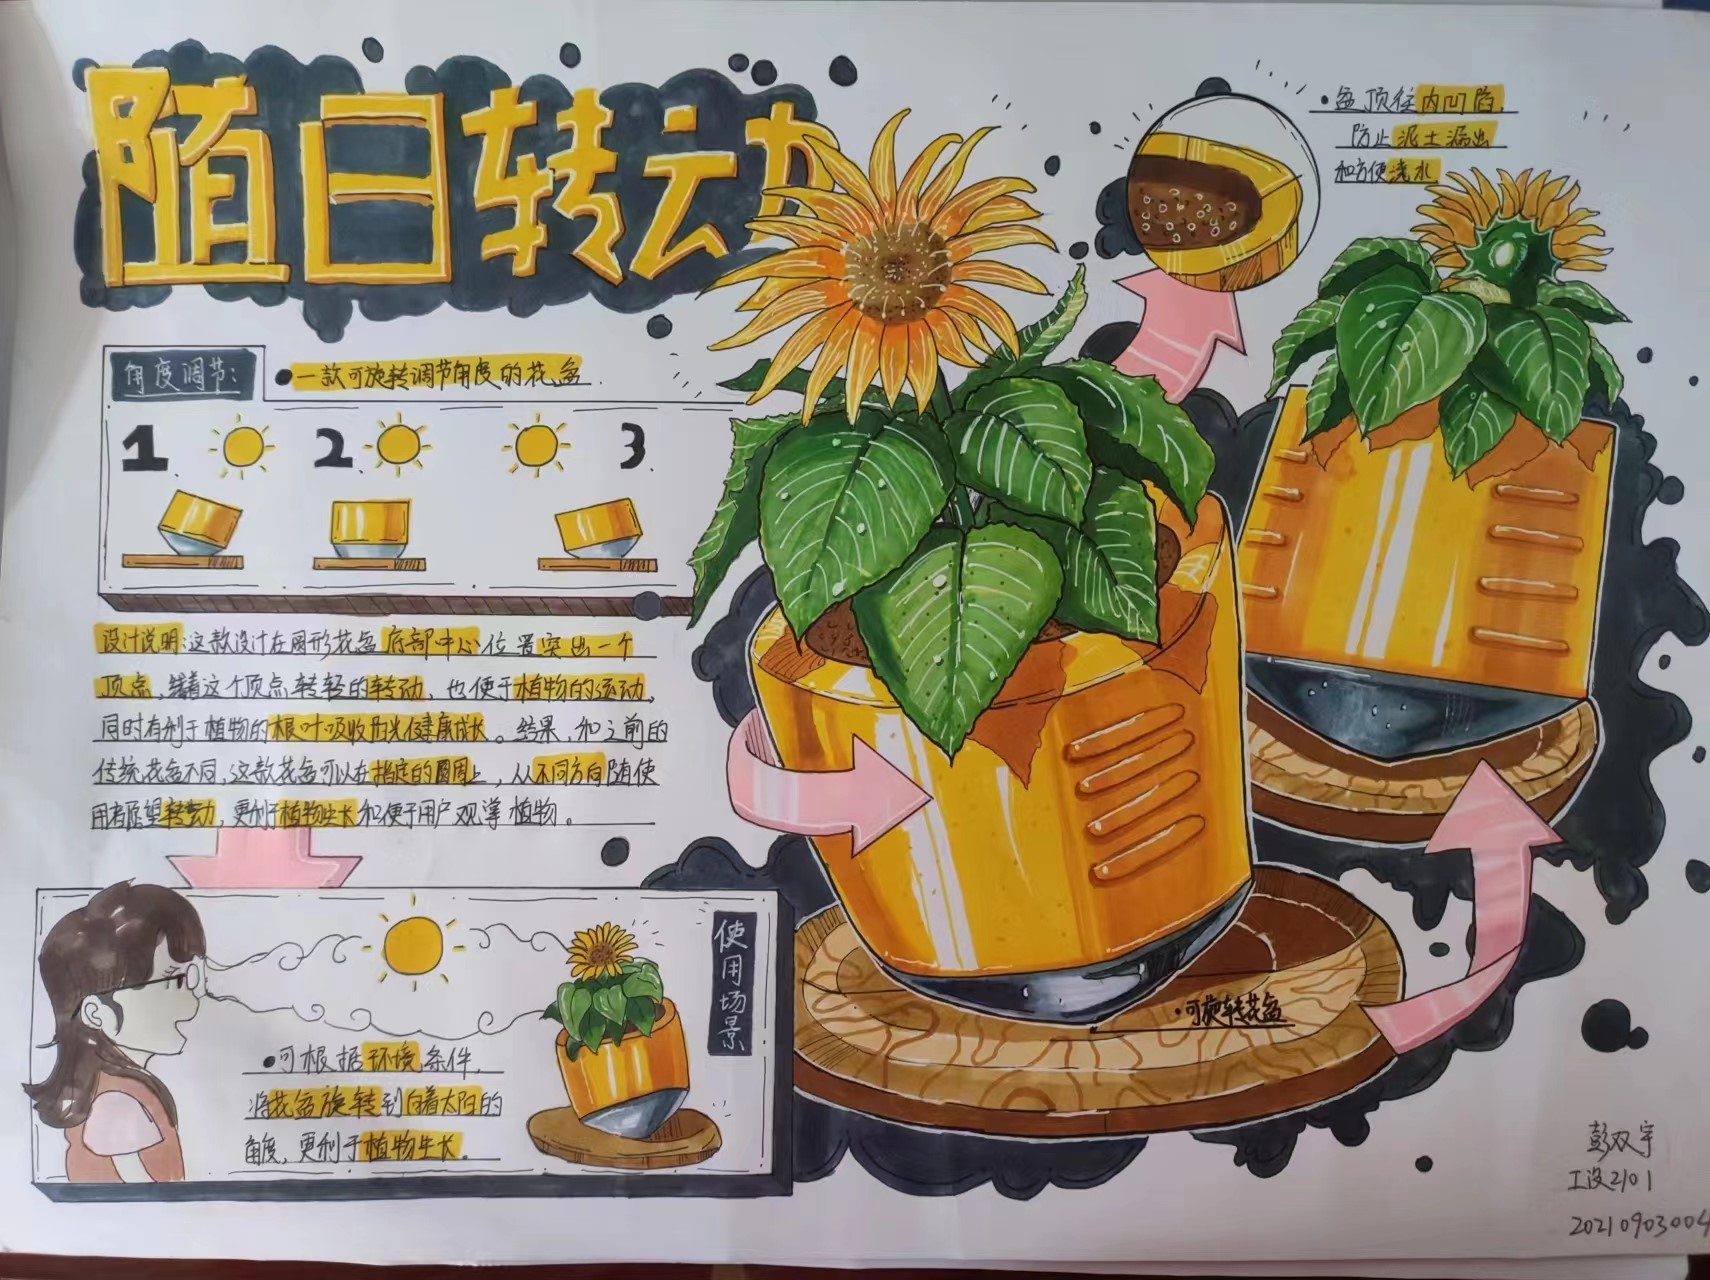 随日转动
角度调节:
•一款可旋转调节角度的花盆
1.
2.
3.
设计说明:这款设计在圆形花盆底部中心位置突出一个
顶点,绕着这个顶点转轻的转动,也便于植物的运动,
同时有利于植物的根叶吸收阳光健康成长。结果,和之前的
传统花盆不同,这款花盆可以在指定的圆周上,从不同方向随使
用者愿望转动,更利于植物生长和便于用户观掌植物。
使用场景
•可根据环境条件,
将花盆旋转到向着太阳的
角度,更利于植物生长。
•盆顶往内凹陷,
防止泥土漏出
和方便浇水
•可旋转花盆
彭双宇
工设2101
20210903004